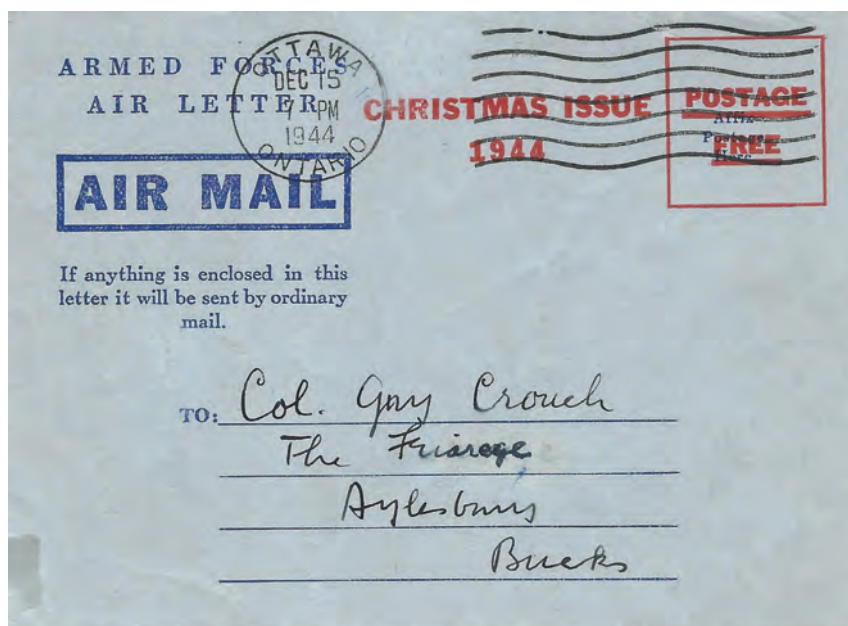 ARMED FORCES
AIR LETTER
OTTAWA
DEC 15
7 PM
1944
ONTARIO
CHRISTMAS ISSUE
1944
POSTAGE
FREE
Affix
Postage
Here
AIR MAIL
If anything is enclosed in this
letter it will be sent by ordinary
mail.
TO: Col. Guy Crouch
The Friarege
Aylesbury
Bucks